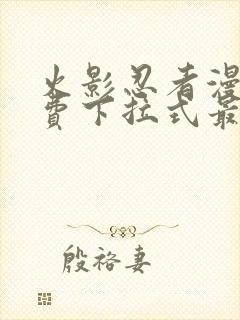 火影忍者漫
费下拉式最
殷袼妻